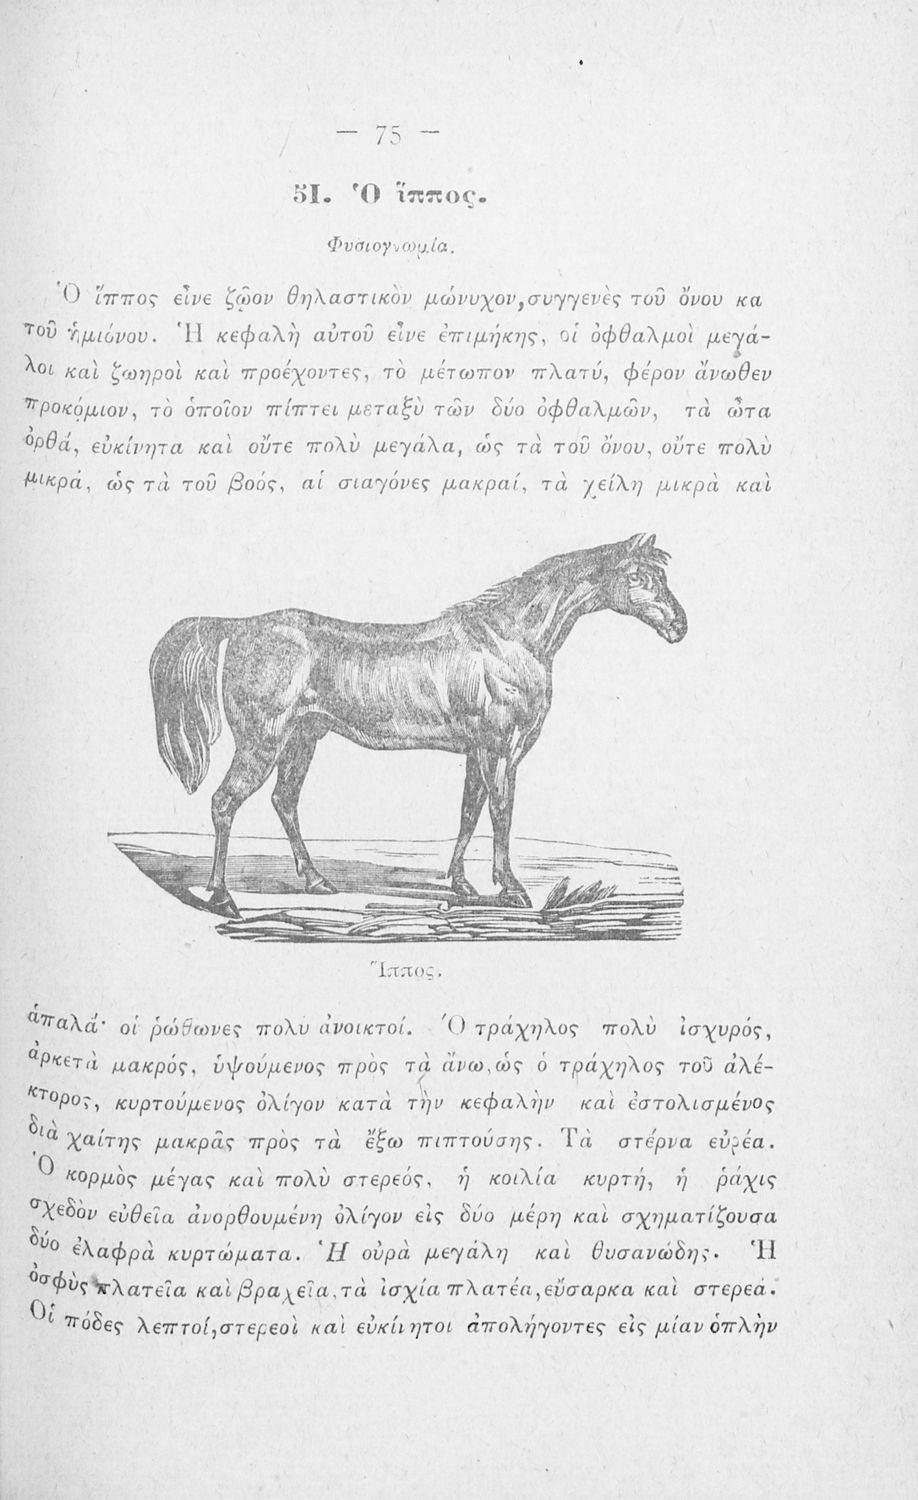 — 75 —
51. Ὁ ἵππος.
Φυσιογνωμία.
Ὁ ἵππος εἶνε ζῷον θηλαστικὸν μώνυχον, συγγενὲς τοῦ ὄνου κα
τοῦ ἡμιόνου. Ἡ κεφαλὴ αὐτοῦ εἶνε ἐπιμήκης, οἱ ὀφθαλμοὶ μεγά-
λοι καὶ ζωηροὶ καὶ προέχοντες, τὸ μέτωπον πλατύ, φέρον ἄνωθεν
προκόμιον, τὸ ὁποῖον πίπτει μεταξὺ τῶν δύο ὀφθαλμῶν, τὰ ὦτα
ὀρθά, εὐκίνητα καὶ οὔτε πολὺ μεγάλα, ὡς τὰ τοῦ ὄνου, οὔτε πολὺ
μικρά, ὡς τὰ τοῦ βοός, αἱ σιαγόνες μακραί, τὰ χείλη μικρὰ καὶ
Ἵππος.
ἁπαλά· οἱ ῥώθωνες πολὺ ἀνοικτοί. Ὁ τράχηλος πολὺ ἰσχυρός,
ἀρκετὰ μακρός, ὑψούμενος πρὸς τὰ ἄνω, ὡς ὁ τράχηλος τοῦ ἀλέ-
κτορος, κυρτούμενος ὀλίγον κατὰ τὴν κεφαλὴν καὶ ἐστολισμένος
διὰ χαίτης μακρᾶς πρὸς τὰ ἔξω πιπτούσης. Τὰ στέρνα εὐρέα.
Ὁ κορμὸς μέγας καὶ πολὺ στερεός, ἡ κοιλία κυρτή, ἡ ῥάχις
σχεδὸν εὐθεῖα ἀνορθουμένη ὀλίγον εἰς δύο μέρη καὶ σχηματίζουσα
δύο ἐλαφρὰ κυρτώματα. Ἡ οὐρὰ μεγάλη καὶ θυσανώδης. Ἡ
ὀσφὺς πλατεῖα καὶ βραχεῖα, τὰ ἰσχία πλατέα, εὔσαρκα καὶ στερεά.
Οἱ πόδες λεπτοί, στερεοὶ καὶ εὐκίνητοι ἀπολήγοντες εἰς μίαν ὁπλὴν